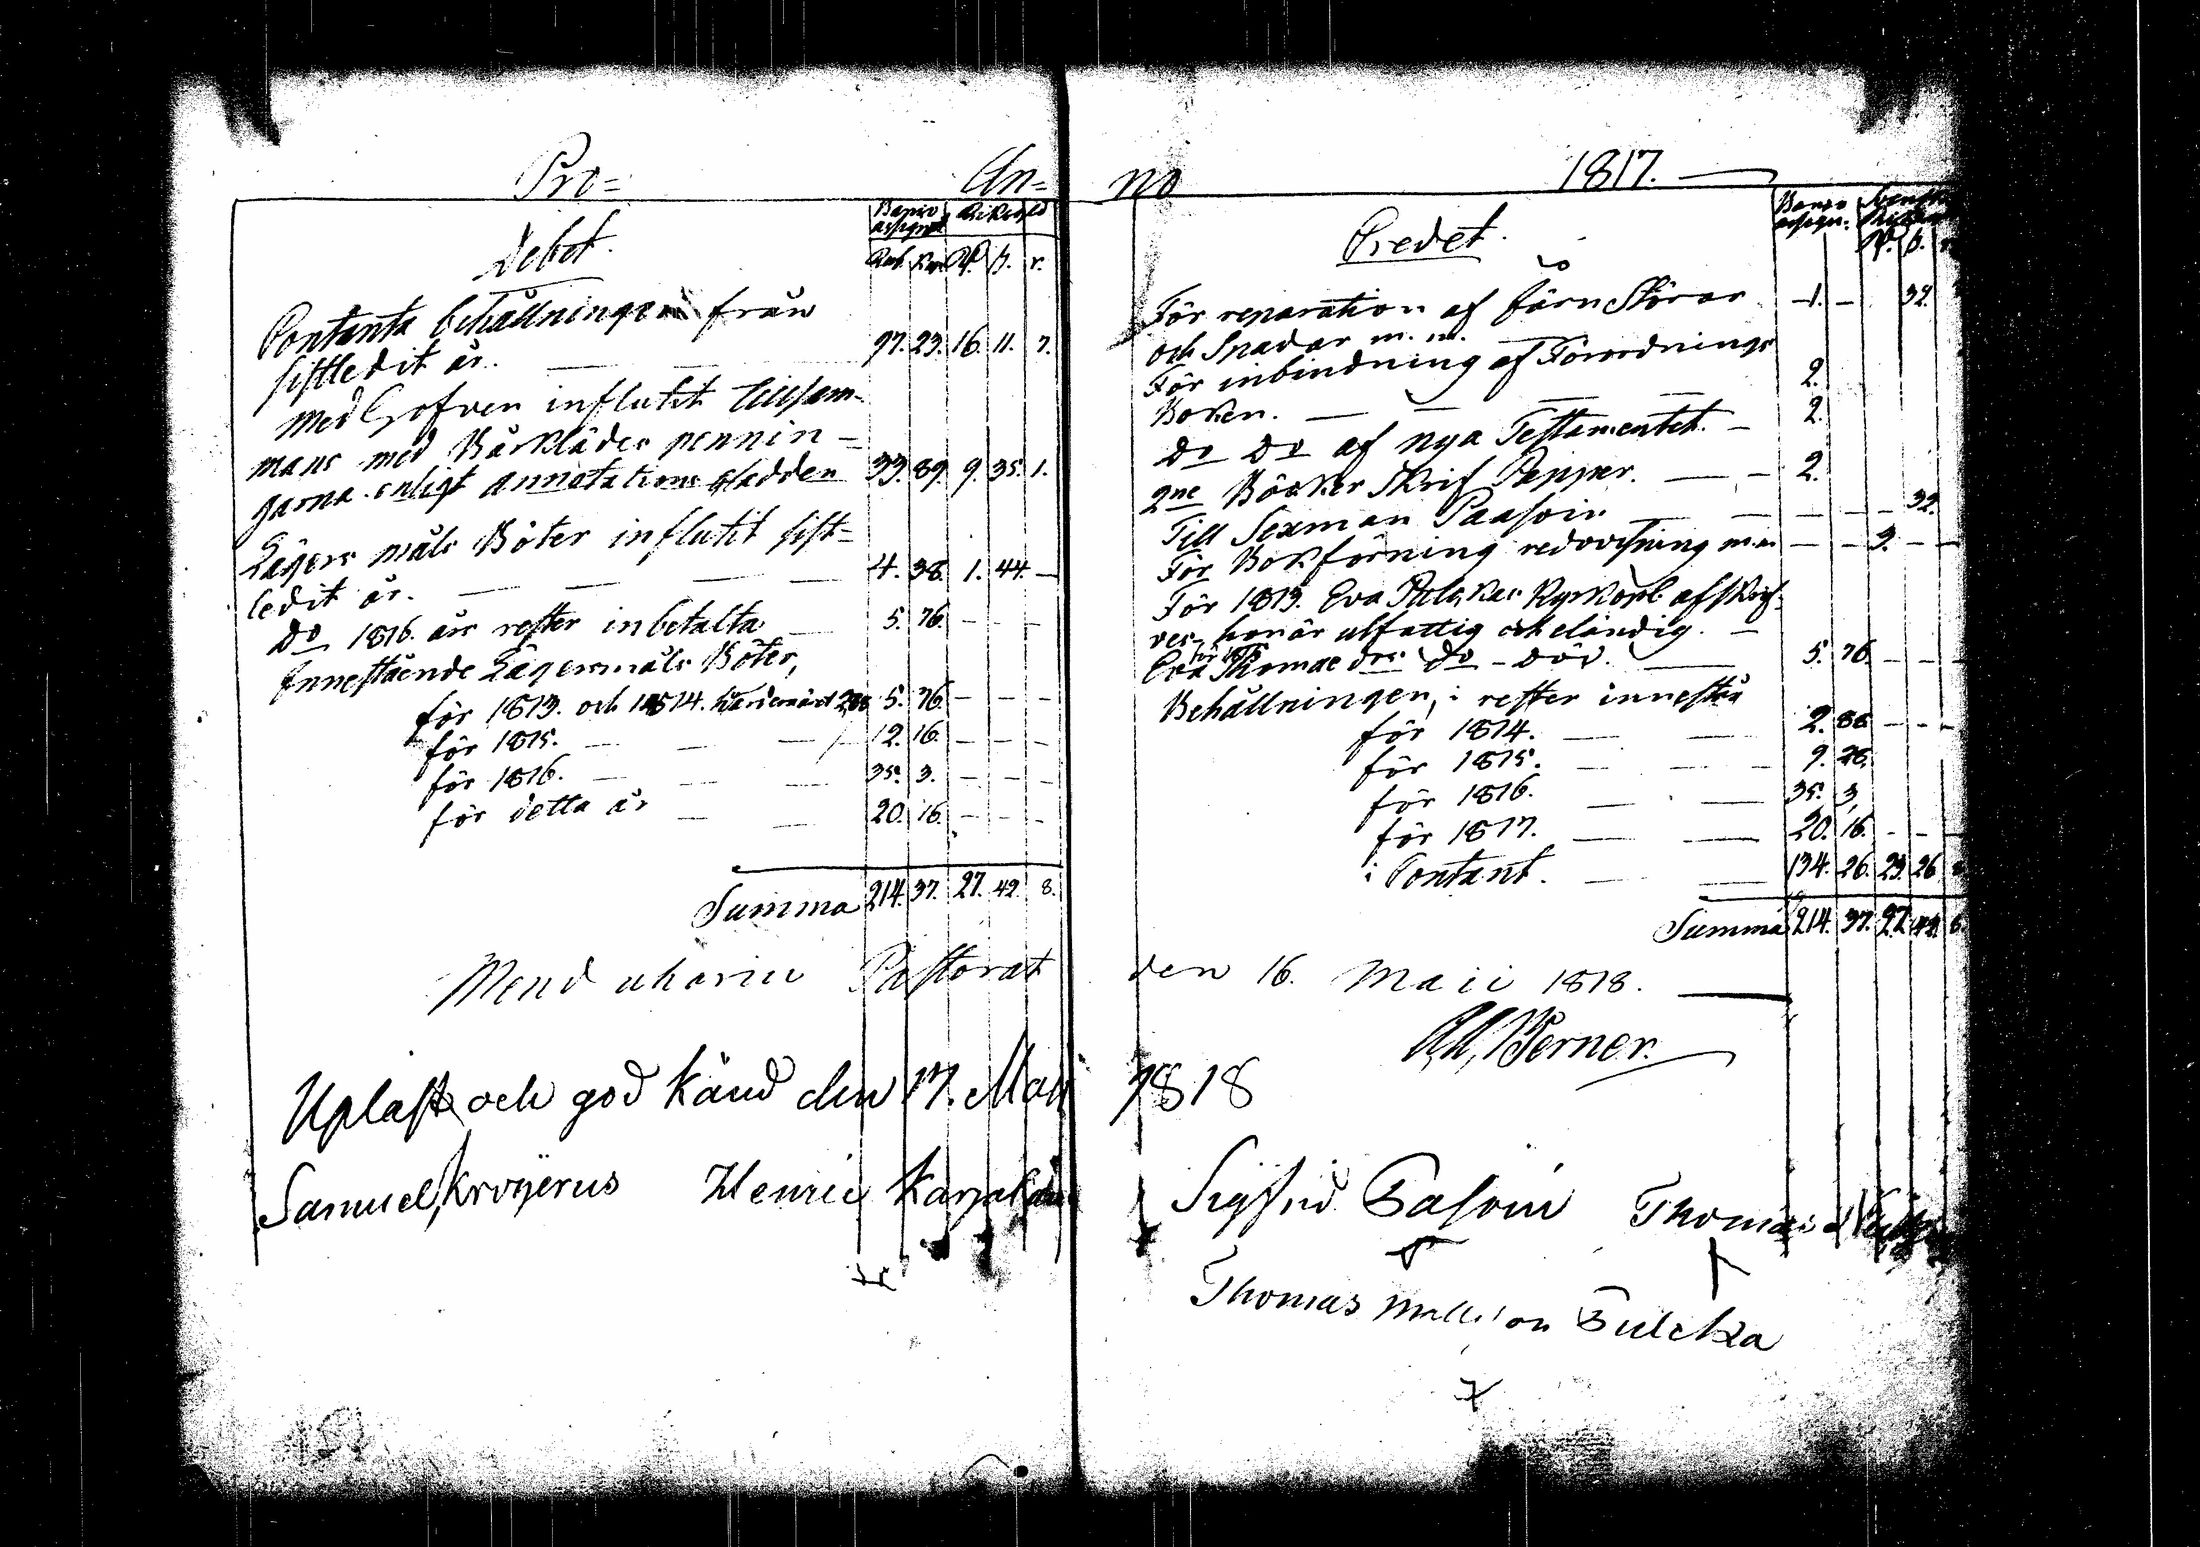 Pro= An= no 1817.
Debet.
Banco assignat. Riksgeld
Rub. Kop. Rd. ß. r.
Contanta behållningen från
sistledit år. — — 97. 23. 16. 11. 7.
Med Hofven influtit tillsam-
mans med Bårklädes pennin-
garna enligt annotations gladden 33. 89. 9. 35. 1.
Lägers måls Böter influtit sist=
ledit år. — — — — 4. 38. 1. 44. —
Do 1816. års rester inbetalta — 5. 76. — — —
Innestående Lägersmåls Böter,
för 1813. och 1814. 5. 76. — — —
för 1815. — — — 12. 16. — — —
för 1816. — — — 35. 3. — — —
för detta år — — 20. 16. — — —
Summa 214. 37. 27. 42. 8.
Credet.
Banco assign. Svenskt
Rd. ß.
För reparation af Järn Störar — 1. — 32.
och Spadar m. m.
För inbindning af Förordnings
Boken. — — — — 2.
Do Do af nya Testamentet. — 2.
2ne Böcker Skrif Papper. — — 2.
Till Sexman Paasoin — — — — 32.
För Bokförning redovisning m.m — — 3. — —
För 1813. Eva Pulckas Kyrkopl. afskrif-
ves, hon är utfattig och eländig. —
för 1815
Eva Thomae dr: Do — död. — 5. 76. — — —
Behållningen, i rester innestå
för 1814. — — 2. 88. — — —
för 1815. — — 9. 28.
för 1816. — — 35. 3.
för 1817. — — 20. 16. — — —
i Contant. — — 134. 26. 23. 26.
Summa 214. 37. 27. 42. 8.
Mend uhariu Pastorat den 16. Maii 1818.
Werner.
Uplast och god känd den 17. Maii 1818
Samuel Kroyerus Henric Karjalain Sigfrid Pasoin Thomas
Thomas Pulcka